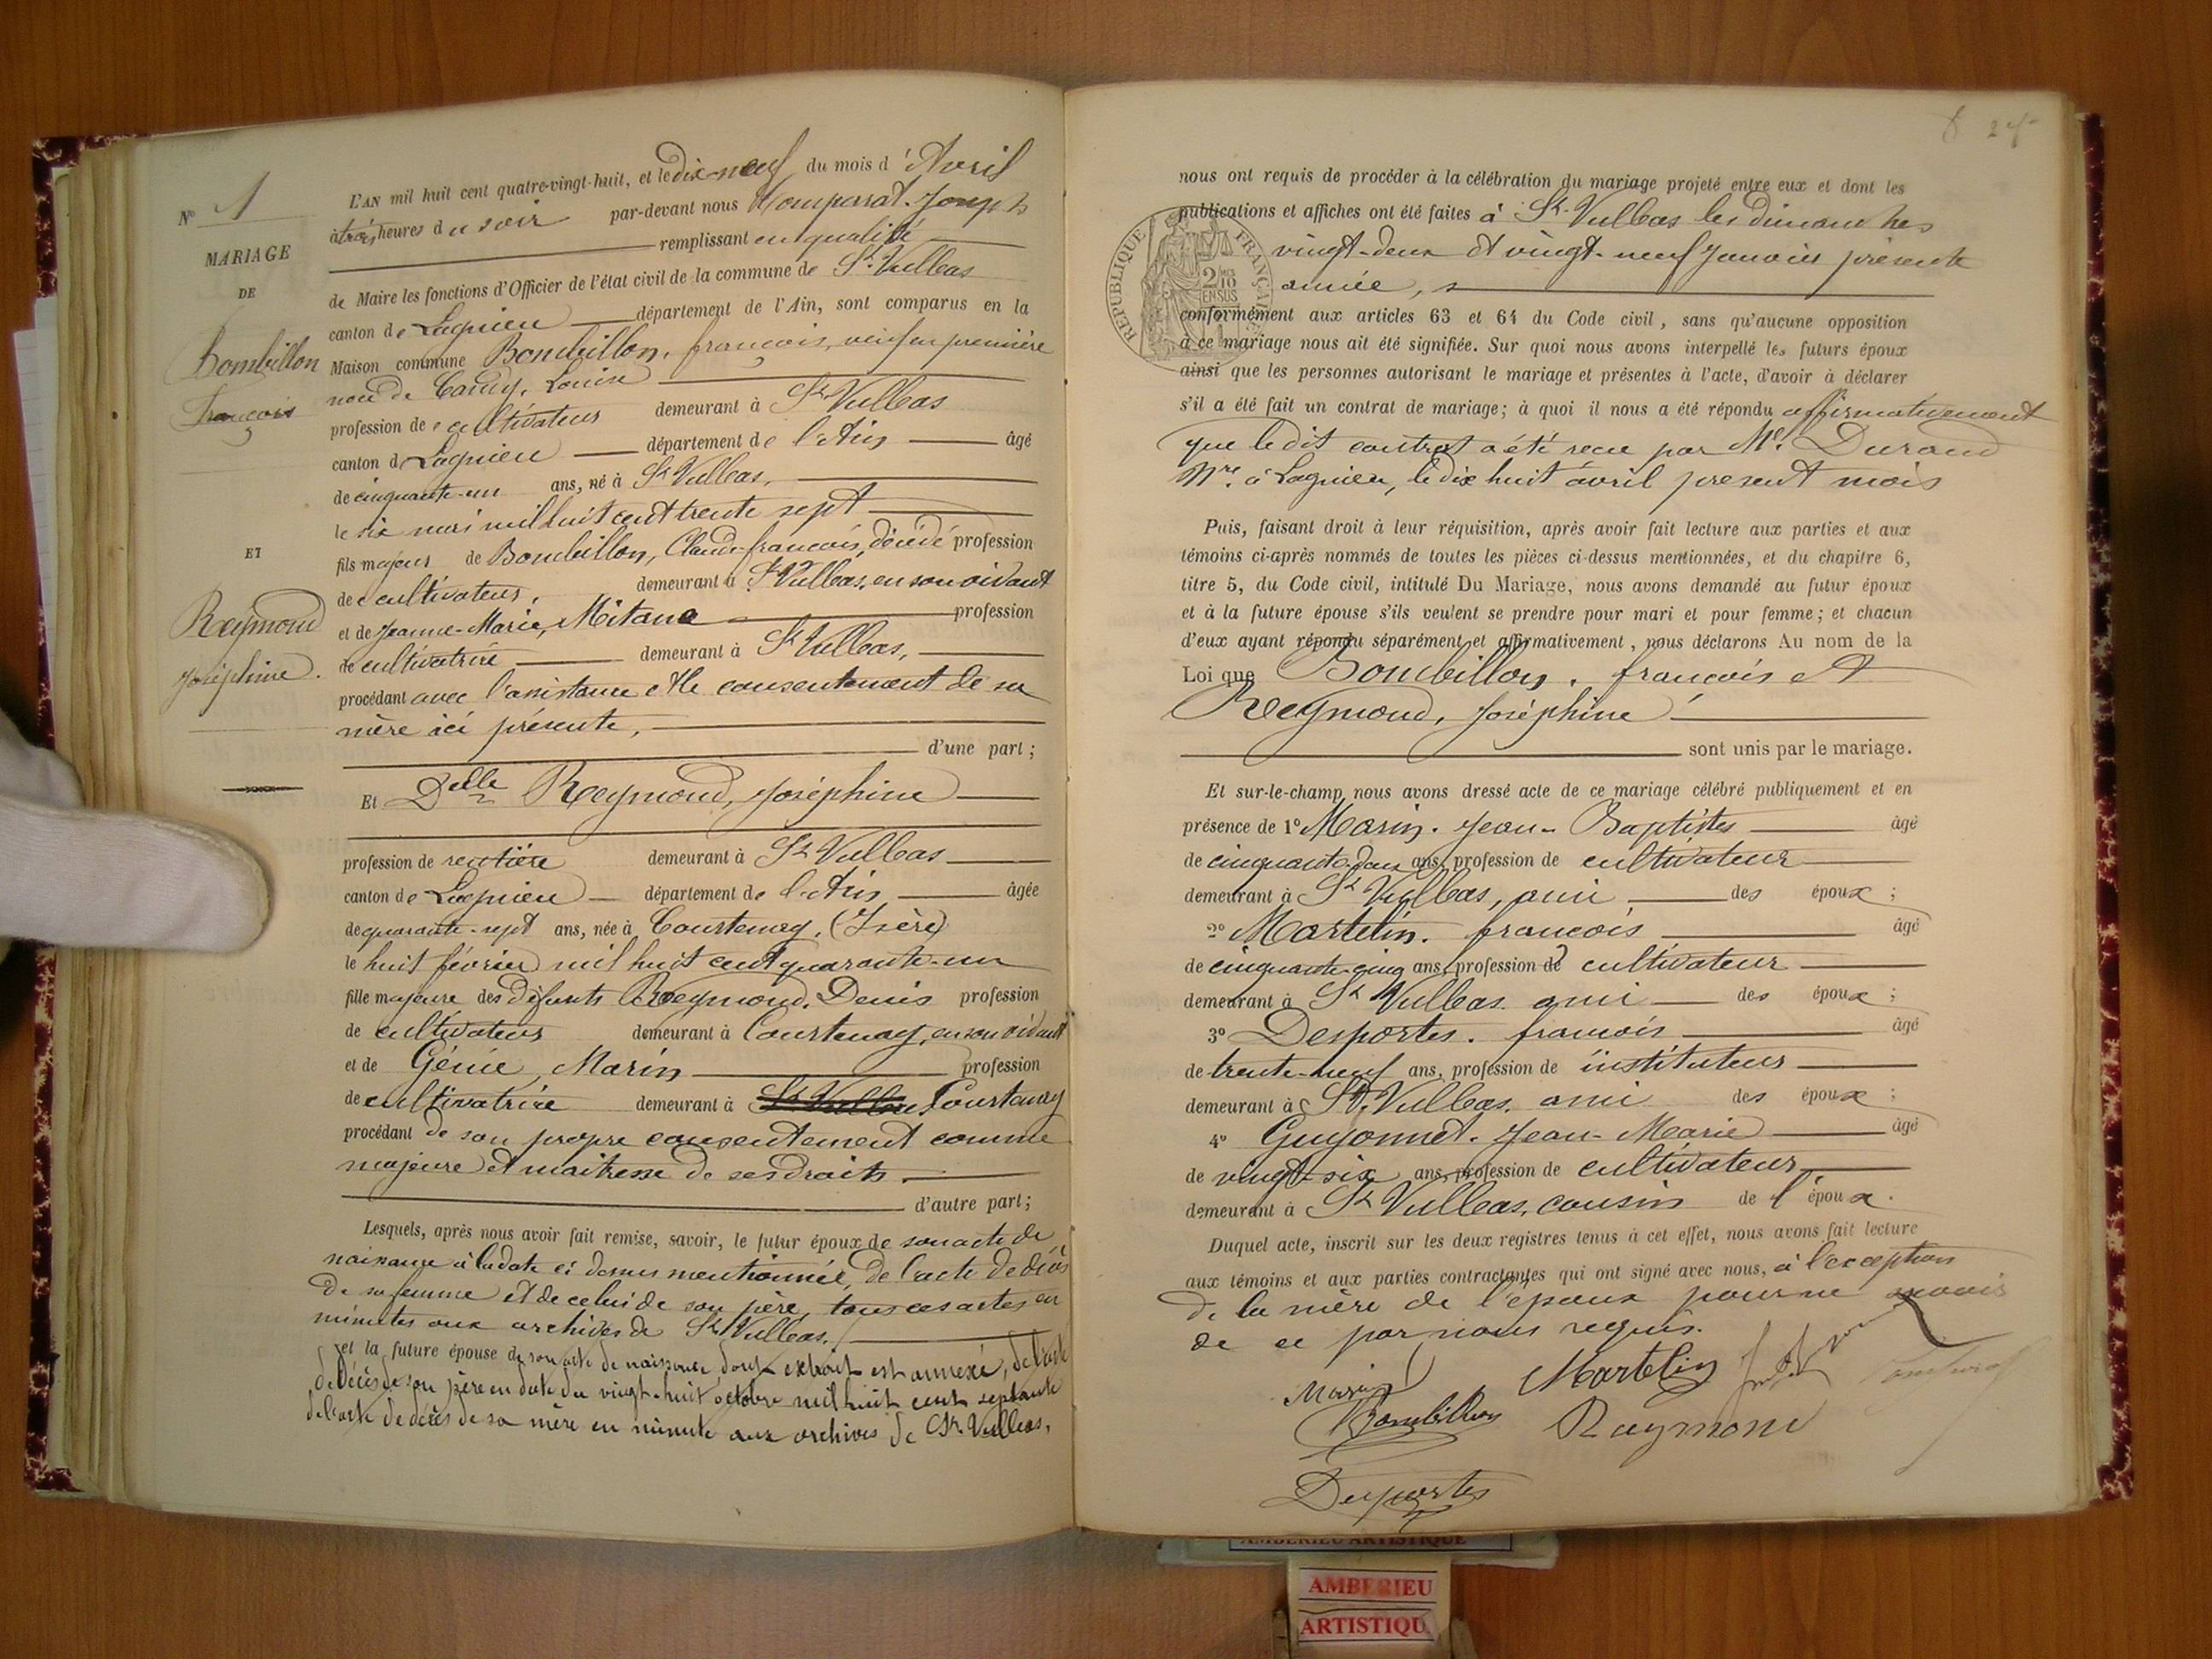 N° 1
MARIAGE
DE
Bombillon
François
ET
Reymond
Joséphine.
L'AN mil huit cent quatre-vingt-huit, et le dix-neuf du mois d'Avril
à trois heures du soir par-devant nous Joseph
remplissant en qualité
de Maire les fonctions d'Officier de l'état civil de la commune de St. Vulbas
canton de Lagnieu département de l'Ain, sont comparus en la
Maison commune Bombillon, françois, veuf en première
noce de Louise
profession de cultivateur demeurant à St. Vulbas
canton de Lagnieu département de l'Ain âgé
de cinquante-un ans, né à St Vulbas,
le six mars mil huit cent trente sept
fils majeur de Bombillon, Claude-françois, décédé profession
de cultivateur, demeurant à St Vulbas, en son vivant
et de Jeanne-Marie, Mitana profession
de cultivatrice demeurant à St Vulbas,
procédant avec l'assistance et le consentement de sa
mère ici présente,
d'une part;
Et Delle Reymond, Joséphine
profession de rentière demeurant à St Vulbas
canton de Lagnieu département de l'Ain âgée
de quarante-sept ans, née à Courtenay, (Isère)
le huit février mil huit cent quarante-un
fille majeure des défunts Reymond, Denis profession
de cultivateur demeurant à Courtenay, en son vivant
et de Génie, Marin profession
de cultivatrice demeurant à St Vulbas Courtenay
procédant de son propre consentement comme
majeure et maitresse de ses droits.
d'autre part;
Lesquels, après nous avoir fait remise, savoir, le futur époux de son acte de
naissance à la date ci dessus mentionnée, de l'acte de décès
de sa femme et de celui de son père, tous ces actes en
minutes aux archives de St Vulbas.
et la future épouse de son acte de naissance, dont extrait est annexé, de l'acte
de décès de son père en date du vingt-huit octobre mil huit cent septante
de l'acte de décès de sa mère en minute aux archives de St. Vulbas.
nous ont requis de procéder à la célébration du mariage projeté entre eux et dont les
publications et affiches ont été faites à St. Vulbas les dimanches
vingt-deux et vingt-neuf Janvier présente
année,
RÉPUBLIQUE FRANÇAISE
conformément aux articles 63 et 64 du Code civil, sans qu'aucune opposition
à ce mariage nous ait été signifiée. Sur quoi nous avons interpellé les futurs époux
ainsi que les personnes autorisant le mariage et présentes à l'acte, d'avoir à déclarer
s'il a été fait un contrat de mariage; à quoi il nous a été répondu affirmativement
que le dit contrat a été reçu par Me. Durand
Nre. à Lagnieu, le dix huit avril present mois
Puis, faisant droit à leur réquisition, après avoir fait lecture aux parties et aux
témoins ci-après nommés de toutes les pièces ci-dessus mentionnées, et du chapitre 6,
titre 5, du Code civil, intitulé Du Mariage, nous avons demandé au futur époux
et à la future épouse s'ils veulent se prendre pour mari et pour femme; et chacun
d'eux ayant répondu séparément et affirmativement, nous déclarons Au nom de la
Loi que Bombillon, françois et
Reymond, Joséphine
sont unis par le mariage.
Et sur-le-champ nous avons dressé acte de ce mariage célébré publiquement et en
présence de 1° Marin. Jean-Baptiste âgé
de cinquante-deux ans, profession de cultivateur
demeurant à St Vulbas, ami des époux;
2° Martelin. françois âgé
de cinquante-cinq ans, profession de cultivateur
demeurant à St Vulbas. ami des époux;
3° Desportes. françois âgé
de trente-neuf ans, profession de instituteur
demeurant à St. Vulbas. ami des époux;
4° Guyonnet. Jean-Marie âgé
de vingt-six ans, profession de cultivateur
demeurant à St Vulbas, cousin de l'époux.
Duquel acte, inscrit sur les deux registres tenus à cet effet, nous avons fait lecture
aux témoins et aux parties contractantes qui ont signé avec nous, à l'exception
de la mère de l'époux pour ne savoir
de ce par nous requis.
Marin Martelin
Bombillon Raymond
Desportes
AMBERIEU ARTISTIQUE
AMBERIEU
ARTISTIQU